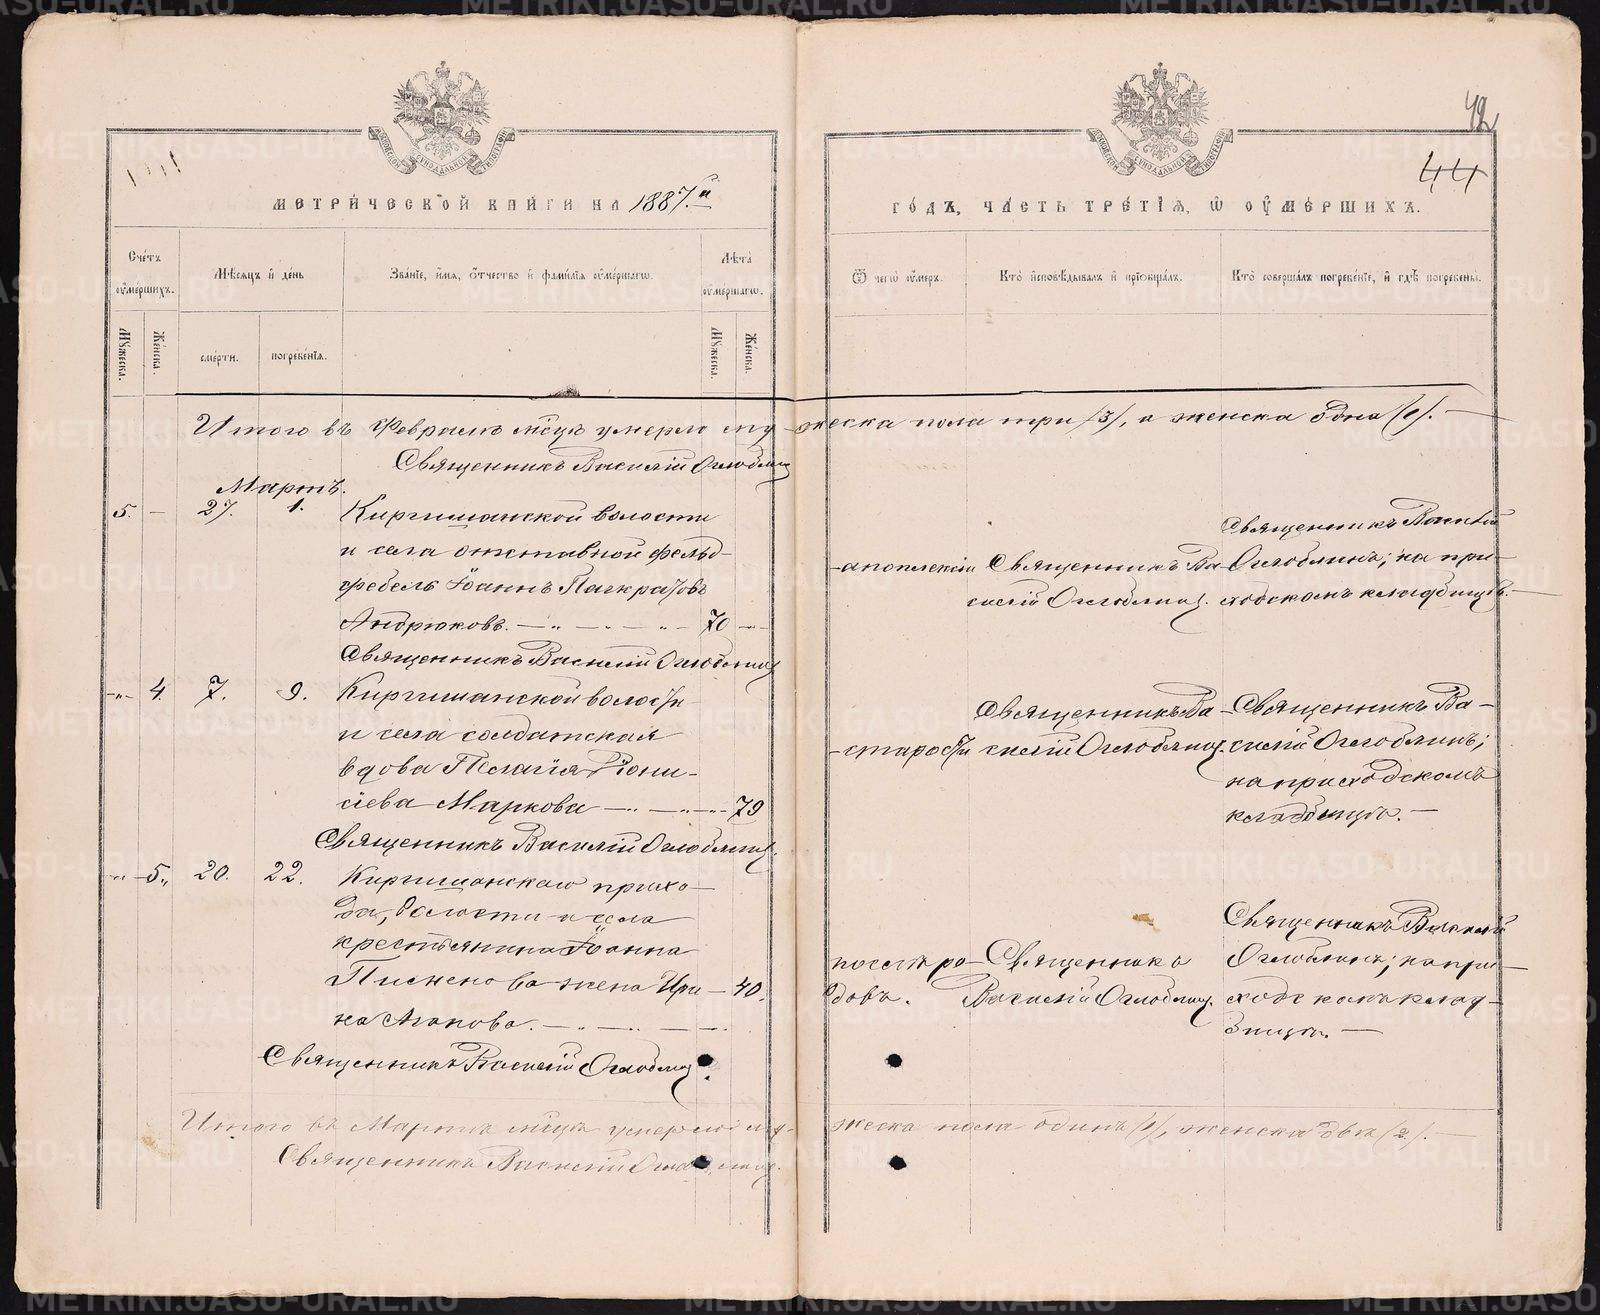 42
44
МЕТРИЧЕСКОЙ КНИГИ НА 1887.й
ГОДЪ, ЧАСТЬ ТРЕТІЯ, Ѿ ОУМЕРШИХЪ.
Счетъ оумершихъ.
Мѣсяцъ и день
Званіе, имя, отчество и фамилія оумершагѡ.
Лѣта оумершагѡ.
Ѿ чегѡ оумеръ.
Кто исповѣдывалъ и пріобщалъ.
Кто совершалъ погребеніе, и гдѣ погребены.
Мужеска.
Женска.
смерти.
погребенія.
Мужеска.
Женска.
Итого въ Февралѣ мѣсцѣ умерло му-жеска пола три /3/, а женска одна /1/. —
Священникъ Василій Оглоблинъ
Мартъ.
5. — 27. 1. Киргишанской волости
и села отставной фельд-
фебель Іоаннъ Панкратовъ
Андрюковъ. — „ — „ — „ — 70 —„—
апоплексіи
Священникъ Ва-
силій Оглоблинъ.
Священникъ Василій
Оглоблинъ; на при-
ходскомъ кладбищѣ. —
Священникъ Василій Оглоблинъ
—„— 4. 7. 9. Киргишанской волости
и села солдатская
вдова Пелагія Діони-
сіева Маркова — „ — „ — „ — 79
старости
Священникъ Ва-
силій Оглоблинъ.
Священникъ Ва-
силій Оглоблинъ;
на приходскомъ
кладбищѣ. —
Священникъ Василій Оглоблинъ.
—„— 5. 20. 22. Киргишанскаго прихо-
да, волости и села
крестьянина Іоанна
Пименова жена Ири- — 40.
на Агапова. — „ — „ —
послѣ ро-
довъ.
Священникъ
Василій Оглоблинъ.
Священникъ Василій
Оглоблинъ; на при-
ходскомъ клад-
бищѣ. —
Священникъ Василій Оглоблинъ.
Итого въ Мартѣ мѣсцѣ умерло му-жеска пола одинъ /1/, женска двѣ /2/. —
Священникъ Василій Оглоблинъ.
METRIKI.GASO-URAL.RU